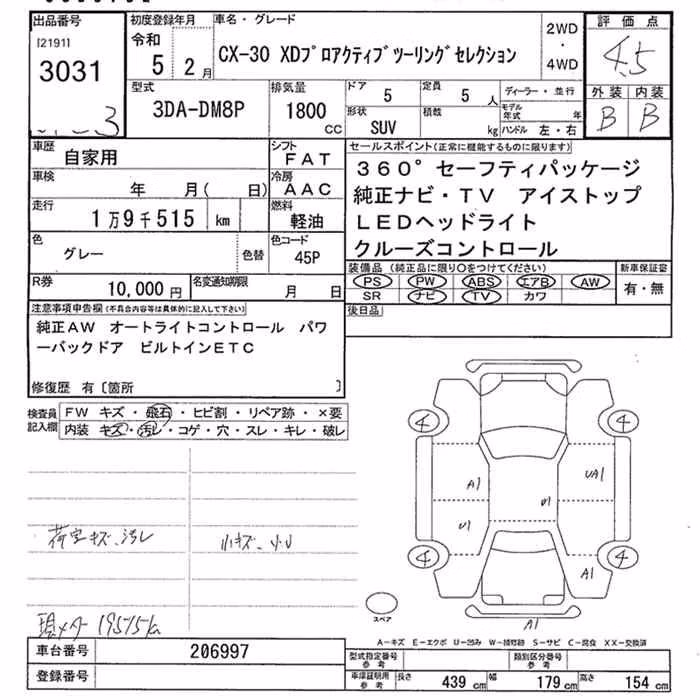 出品番号 初度登録年月 車名・グレード 評価点
[2191] 令和 2WD
3031 5 2月 CX-30 XDプロアクティブツーリングセレクション ・ 4.5
4WD
型式 排気量 ドア 5 定員 5人 ディーラー・並行 外装 内装
3DA-DM8P 1800 CC 形状 SUV 積載 kg モデル年式 年 B B
3 ハンドル 左・右
車歴 自家用 シフト FAT セールスポイント(正常に機能するものに限ります)
車検 年 月( 日) 冷房 AAC 360°セーフティパッケージ
走行 1万9千515 km 燃料 軽油 純正ナビ・TV アイストップ
LEDヘッドライト
色 グレー 色替 色コード 45P クルーズコントロール
R券 10,000円 名変通知期限 月 日 装備品(純正品に限り○をつけてください) 新車保証書
PS PW ABS エアB AW 有・無
SR ナビ TV カワ
注意事項申告欄(不具合内容等は具体的に記入して下さい) 後日品
純正AW オートライトコントロール パワ
ーバックドア ビルトインETC
修復歴 有〔箇所 〕
検査員記入欄 FW キズ・飛石・ヒビ割・リペア跡・×要
内装 キズ・汚レ・コゲ・穴・スレ・キレ・破レ
4 4
A1 UA1
U1
U1
荷室キズ、汚レ 小キズ、小U
4 4
A1
スペア
A1
現メーター 19515km
A-キズ E-エクボ U-凹み W-補修跡 S-サビ C-腐食 XX-交換済
車台番号 206997 型式指定番号 参考 類別区分番号 参考
登録番号 車庫証明用参考 長さ 439cm 幅 179cm 高さ 154cm